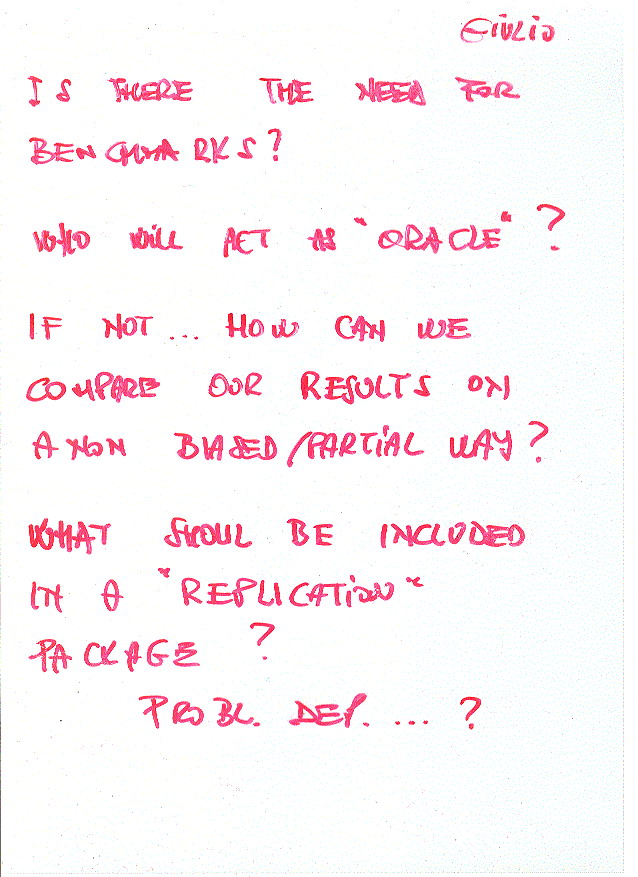 GIULIO
IS THERE THE NEED FOR
BENCHMARKS?
WHO WILL ACT AS "ORACLE" ?
IF NOT... HOW CAN WE
COMPARE OUR RESULTS ON
A NON BIASED/PARTIAL WAY?
WHAT SHOUL BE INCLUDED
IN A "REPLICATION"
PACKAGE ?
PROBL. DEP. ... ?